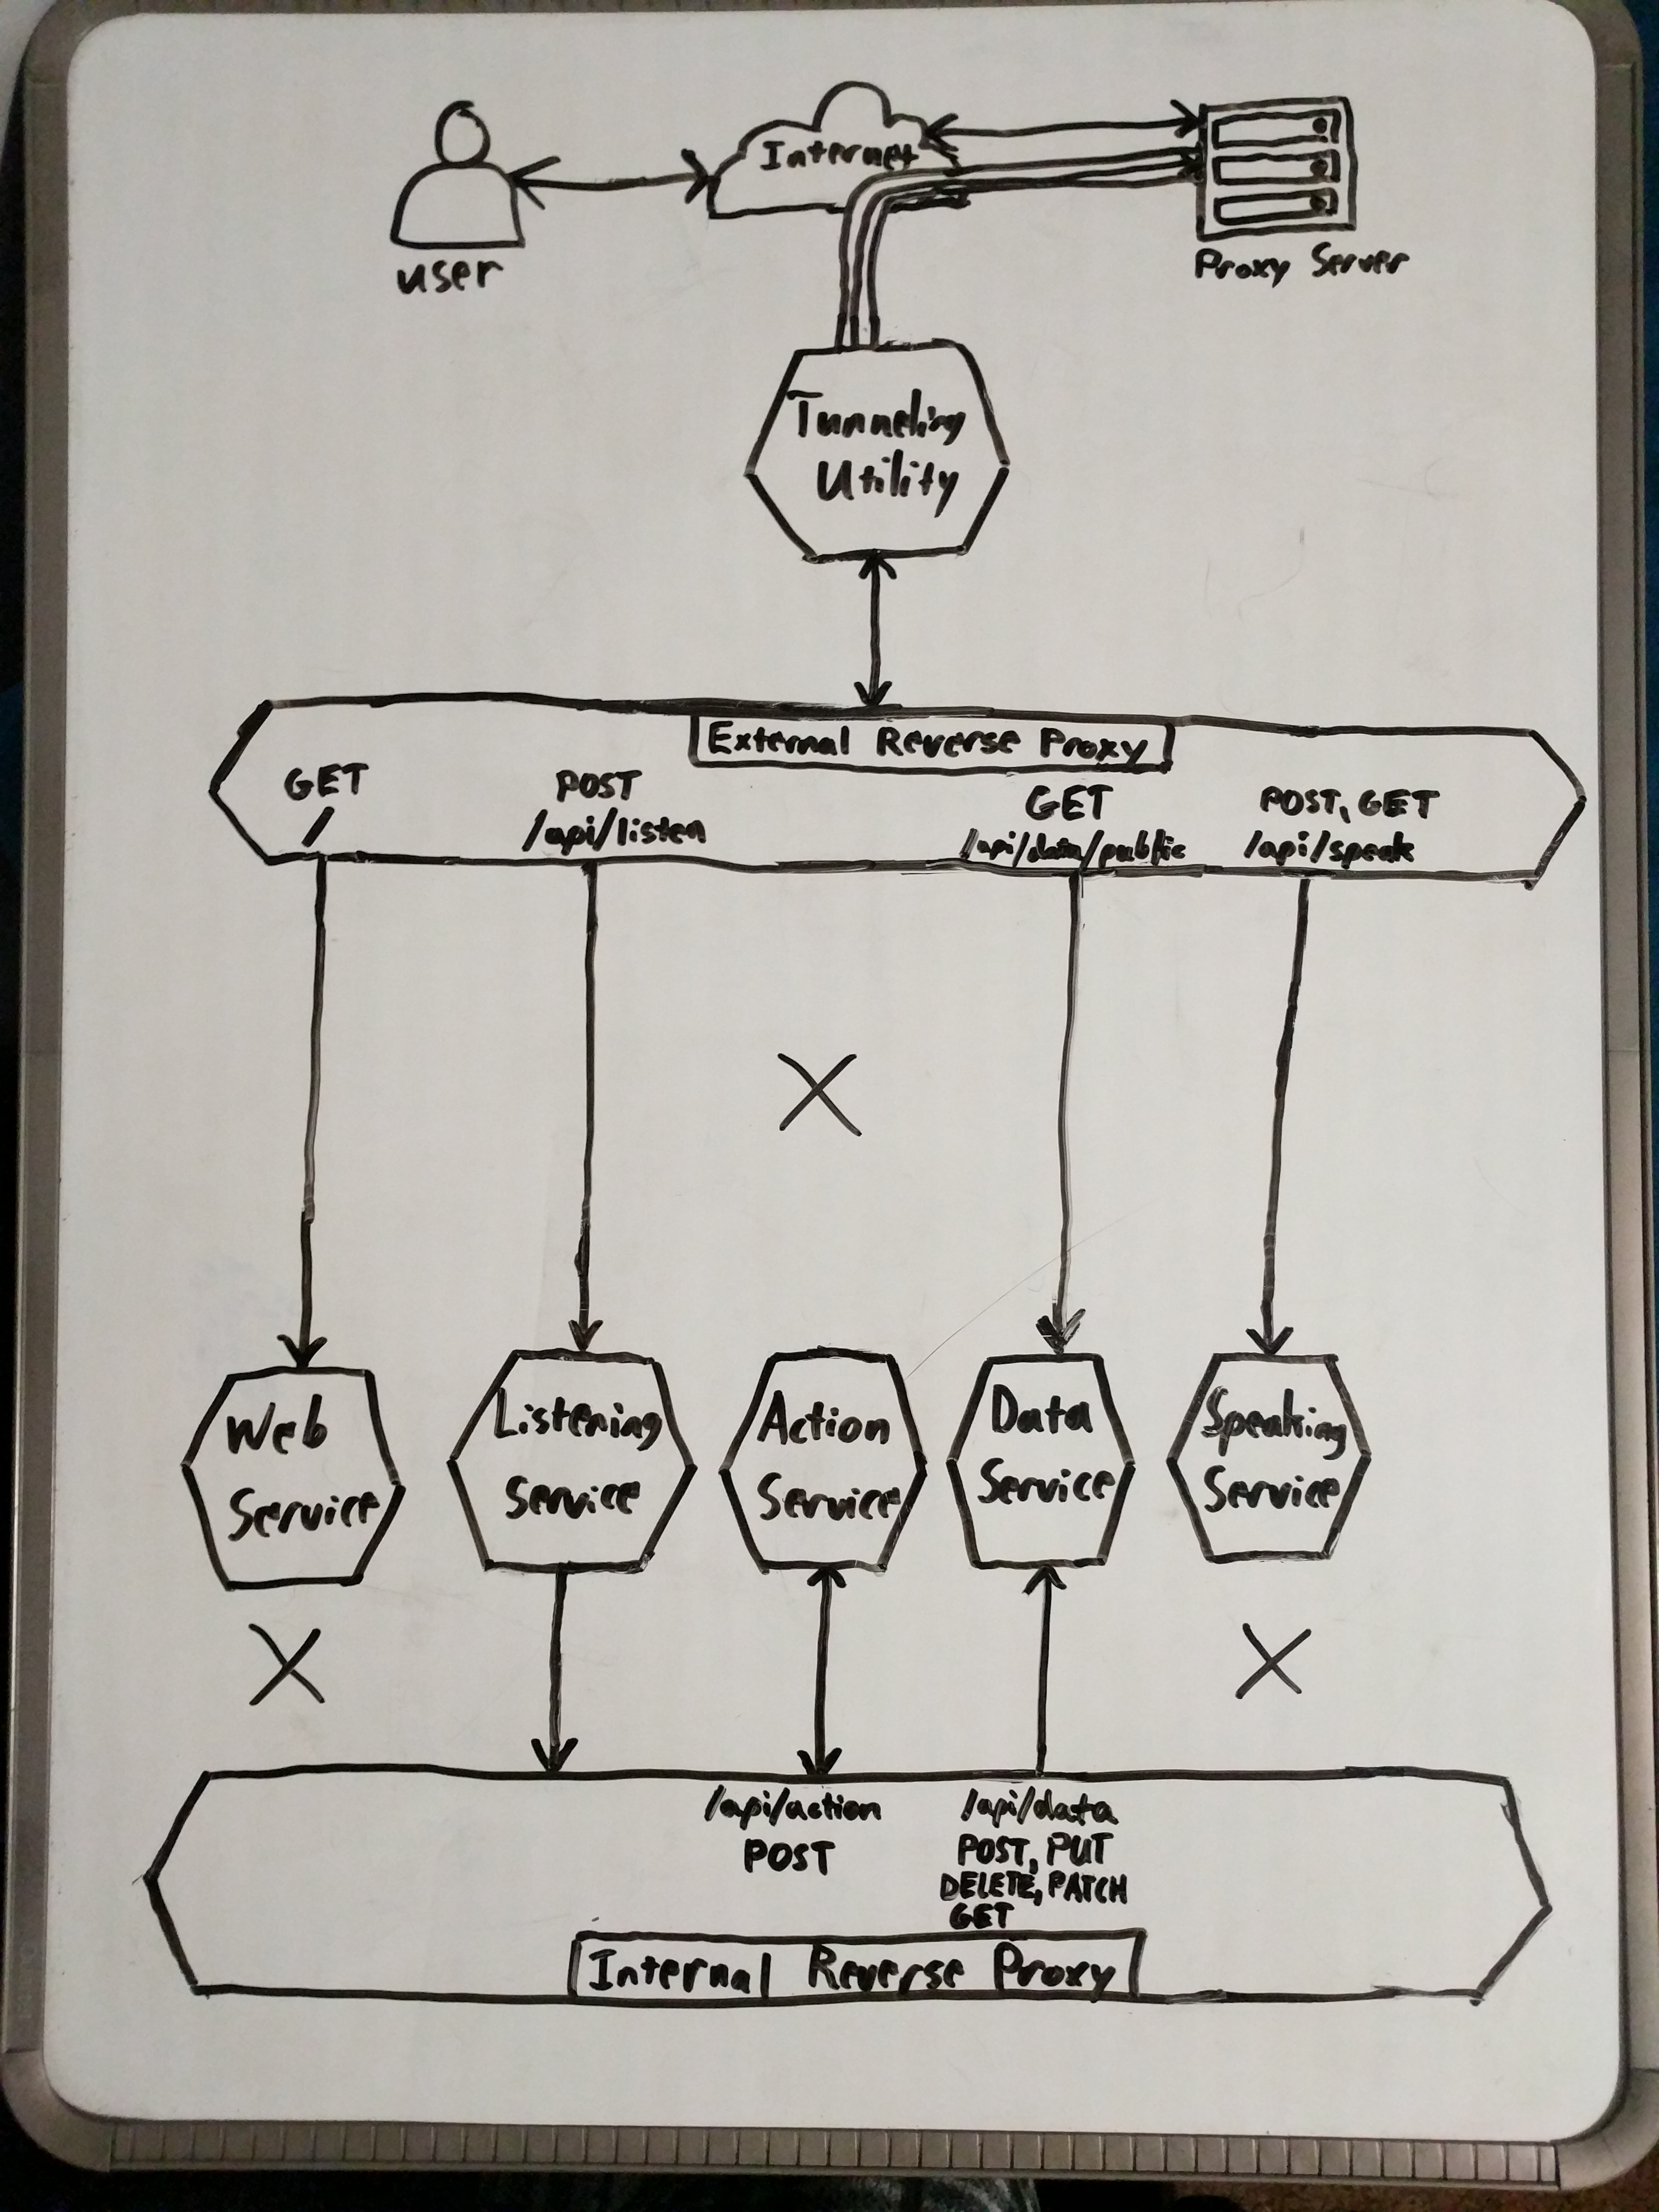 Internet
user
Proxy Server
Tunneling
Utility
External Reverse Proxy
GET
/
POST
/api/listen
GET
/api/data/public
POST, GET
/api/speak
Web
Service
Listening
Service
Action
Service
Data
Service
Speaking
Service
/api/action
POST
/api/data
POST, PUT
DELETE, PATCH
GET
Internal Reverse Proxy